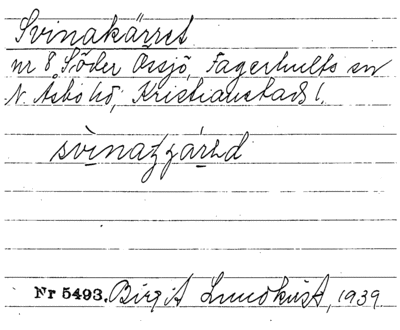 Svinakärret
nr 8 Söder Össjö, Fagerhults sn
N. Åsbo hd, Kristianstads l.
Nr 5493. Birgit Lundkvist, 1939